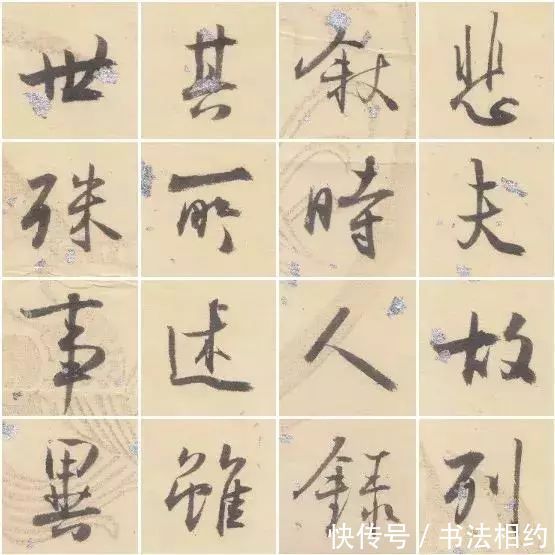 悲夫故列
叙時人錄
其所述雖
世殊事異
快传号 / 书法相约